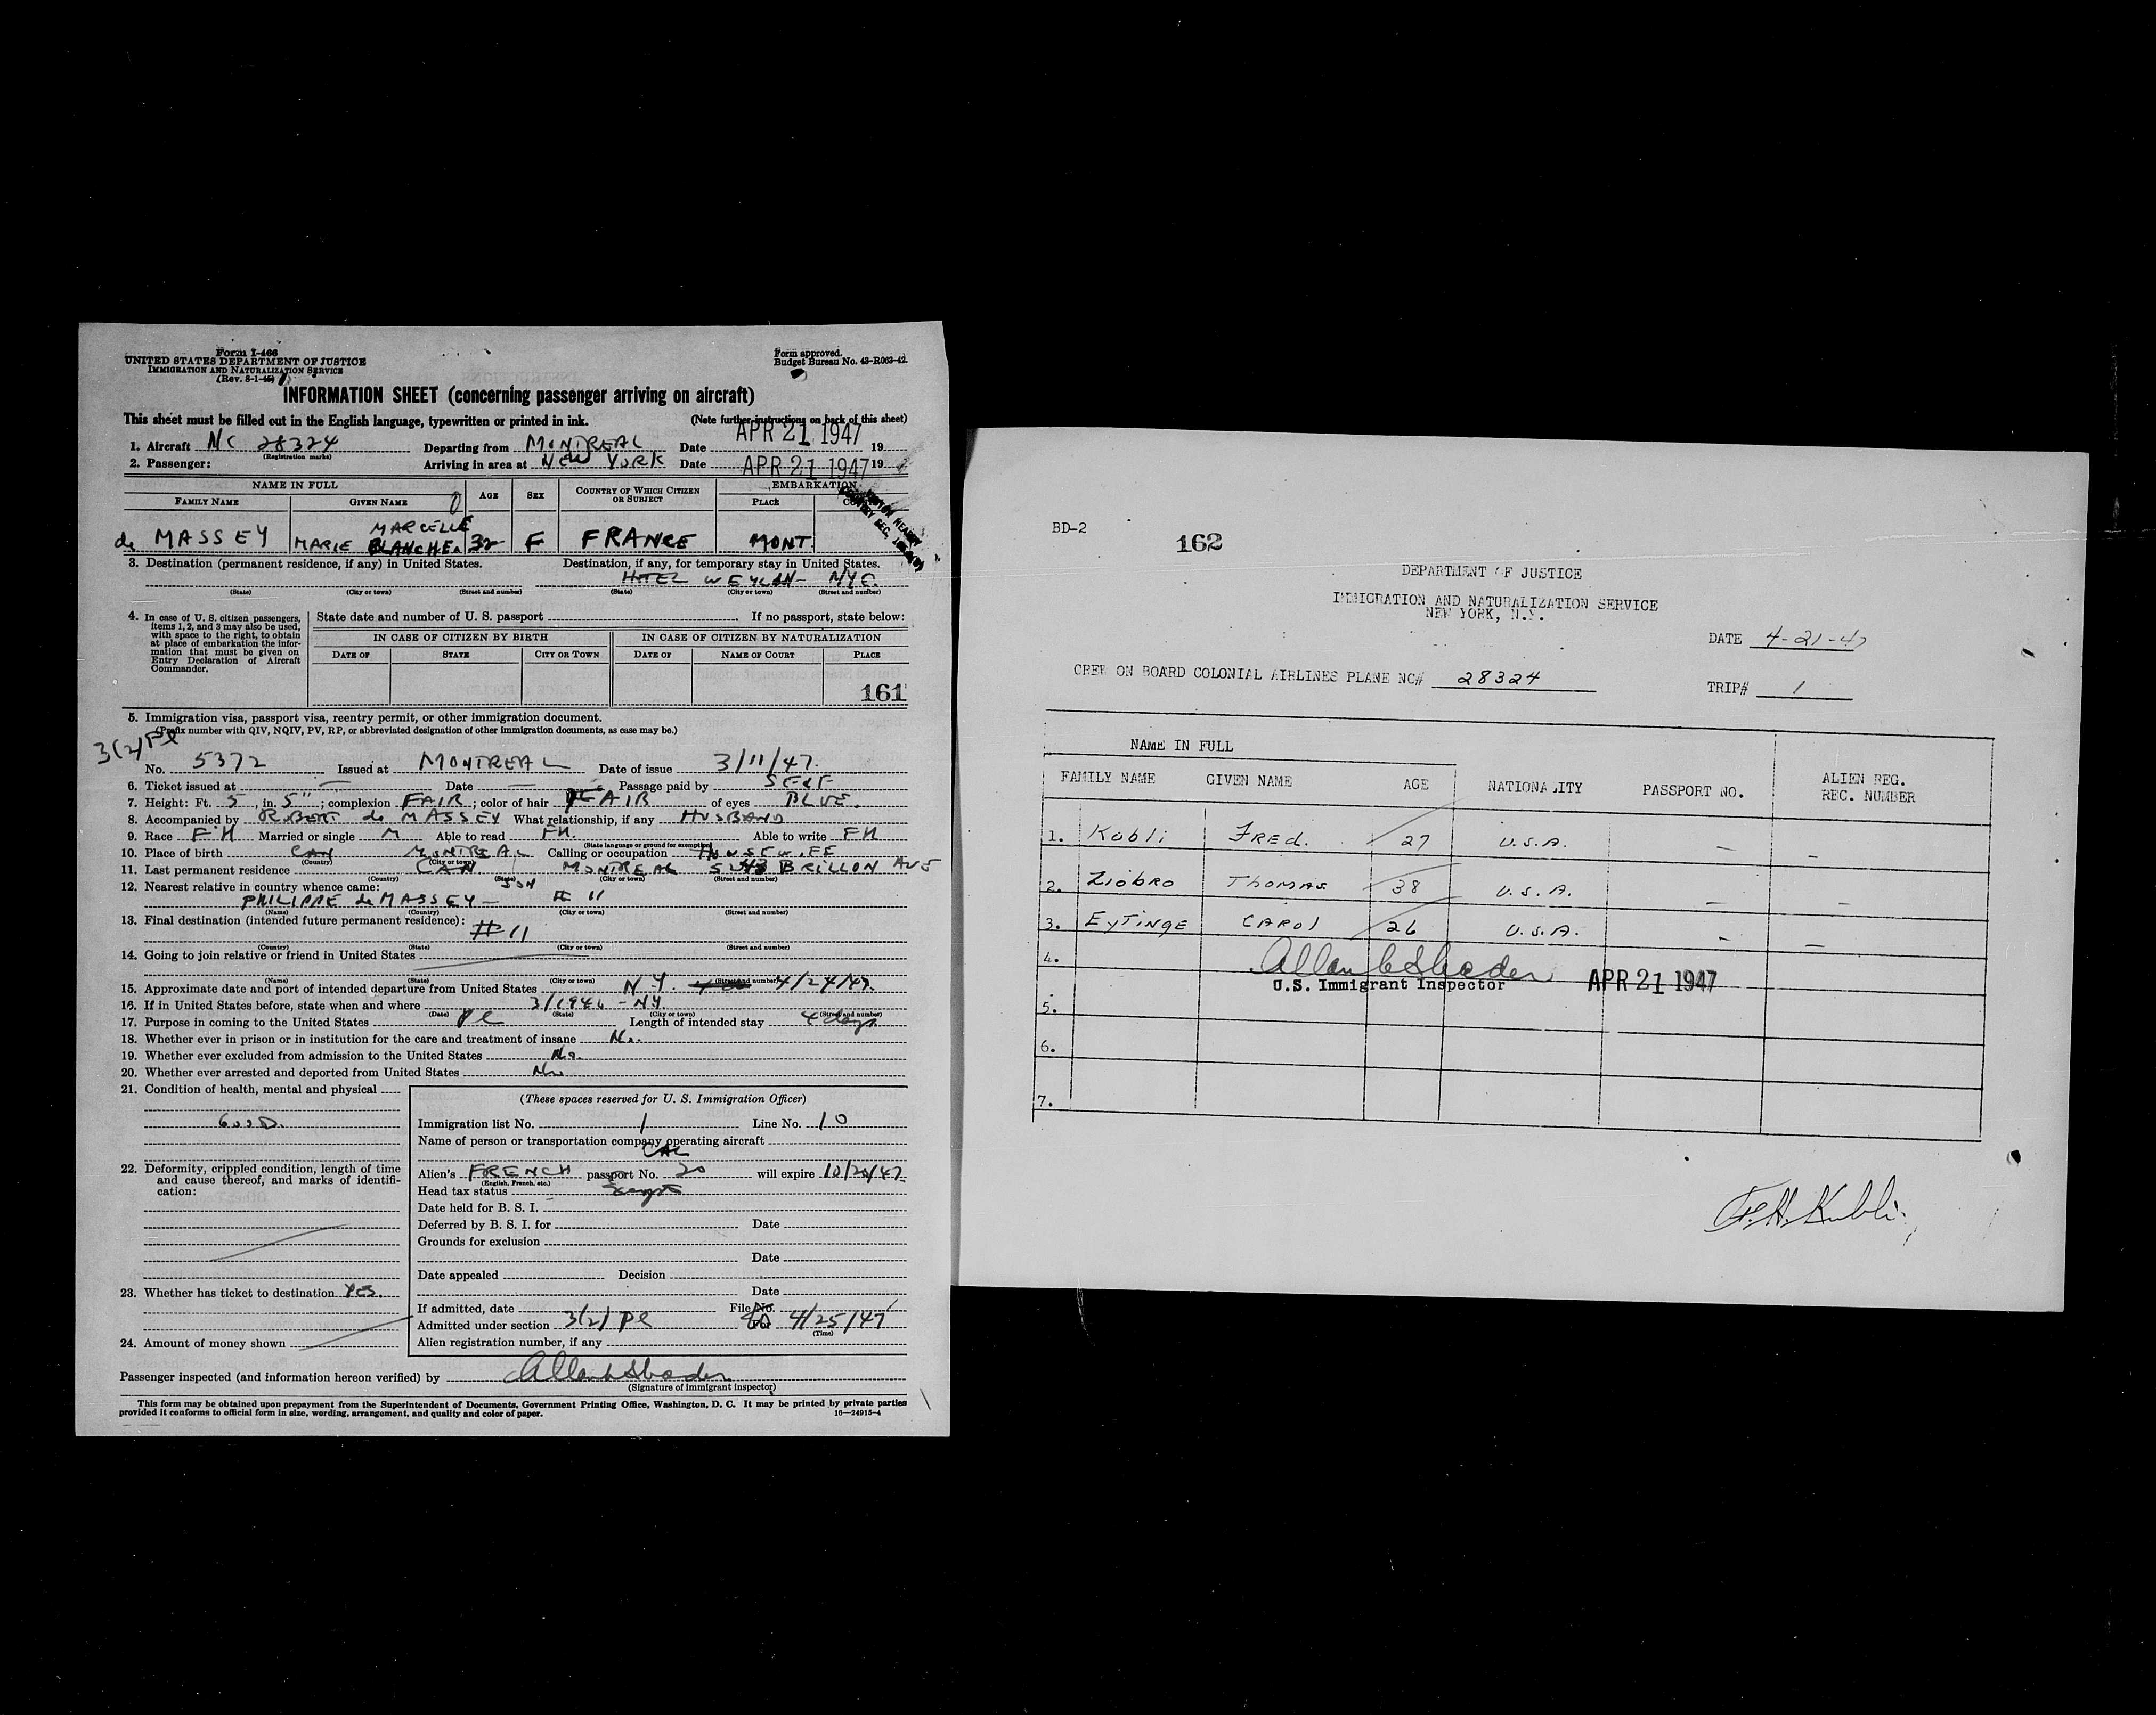 Form I-466
UNITED STATES DEPARTMENT OF JUSTICE
IMMIGRATION AND NATURALIZATION SERVICE
(Rev. 8-1-45)
Form approved.
Budget Bureau No. 43-R063-42.
INFORMATION SHEET (concerning passenger arriving on aircraft)
This sheet must be filled out in the English language, typewritten or printed in ink. (Note further instructions on back of this sheet)
1. Aircraft NC 28324 Departing from MONTREAL Date APR 21 1947 19
(Registration marks)
2. Passenger: Arriving in area at NEW YORK Date APR 21 1947 19
NAME IN FULL AGE SEX COUNTRY OF WHICH CITIZEN OR SUBJECT EMBARKATION
FAMILY NAME GIVEN NAME PLACE
MARCELLE
de MASSEY MARIE BLANCHE 32 F FRANCE MONT.
3. Destination (permanent residence, if any) in United States. Destination, if any, for temporary stay in United States.
HOTEL WEYLAN - NYC.
(State) (City or town) (Street and number) (State) (City or town) (Street and number)
4. In case of U. S. citizen passengers, items 1, 2, and 3 may also be used, with space to the right, to obtain at place of embarkation the information that must be given on Entry Declaration of Aircraft Commander.
State date and number of U. S. passport If no passport, state below:
IN CASE OF CITIZEN BY BIRTH IN CASE OF CITIZEN BY NATURALIZATION
DATE OF STATE CITY OR TOWN DATE OF NAME OF COURT PLACE
161
5. Immigration visa, passport visa, reentry permit, or other immigration document.
(Prefix number with QIV, NQIV, PV, RP, or abbreviated designation of other immigration documents, as case may be.)
3(2) Pl
No. 5372 Issued at MONTREAL Date of issue 3/11/47.
6. Ticket issued at — Date — Passage paid by SELF
7. Height: Ft. 5, in. 5"; complexion FAIR; color of hair FAIR of eyes BLUE.
8. Accompanied by ROBERT de MASSEY What relationship, if any HUSBAND
9. Race FH Married or single M Able to read FH. Able to write FH
(State language or ground for exemption)
10. Place of birth CAN MONTREAL Calling or occupation HOUSEWIFE
(Country) (City or town)
11. Last permanent residence CAN MONTREAL BRILLON AVE
(Country) (State) (City or town) (Street and number)
12. Nearest relative in country whence came: SON
PHILIPPE de MASSEY — # 11
(Name) (Country) (City or town) (Street and number)
13. Final destination (intended future permanent residence): # 11
(Country) (State) (City or town) (Street and number)
14. Going to join relative or friend in United States
(Name) (State) (City or town) (Street and number)
15. Approximate date and port of intended departure from United States N.Y. 4/24/47.
16. If in United States before, state when and where 3/1946 - NY.
(Date) (State) (City or town) (Street and number)
17. Purpose in coming to the United States Pl Length of intended stay 4 days
18. Whether ever in prison or in institution for the care and treatment of insane No.
19. Whether ever excluded from admission to the United States No.
20. Whether ever arrested and deported from United States No
21. Condition of health, mental and physical
GOOD.
22. Deformity, crippled condition, length of time and cause thereof, and marks of identification:
23. Whether has ticket to destination YES.
24. Amount of money shown
(These spaces reserved for U. S. Immigration Officer)
Immigration list No. 1 Line No. 10
Name of person or transportation company operating aircraft
CAL
Alien's FRENCH passport No. 20 will expire 10/20/47.
(English, French, etc.)
Head tax status Exempt
Date held for B. S. I.
Deferred by B. S. I. for Date
Grounds for exclusion
Date
Date appealed Decision
Date
If admitted, date File No.
Admitted under section 3(2) Pl 4/25/47
(Time)
Alien registration number, if any
Passenger inspected (and information hereon verified) by
(Signature of immigrant inspector)
This form may be obtained upon prepayment from the Superintendent of Documents, Government Printing Office, Washington, D. C. It may be printed by private parties
provided it conforms to official form in size, wording, arrangement, and quality and color of paper. 16—24915-4
BD-2
162
DEPARTMENT OF JUSTICE
IMMIGRATION AND NATURALIZATION SERVICE
NEW YORK, N.Y.
DATE 4-21-47
CREW ON BOARD COLONIAL AIRLINES PLANE NC# 28324
TRIP# 1
NAME IN FULL
FAMILY NAME GIVEN NAME AGE NATIONALITY PASSPORT NO. ALIEN REG. REC. NUMBER
1. Kubli FRED. 27 U.S.A. — —
2. Ziobro THOMAS 38 U.S.A. — —
3. EyTinge CAROl 26 U.S.A. — —
4.
U.S. Immigrant Inspector APR 21 1947
5.
6.
7.
F.H. Kubli